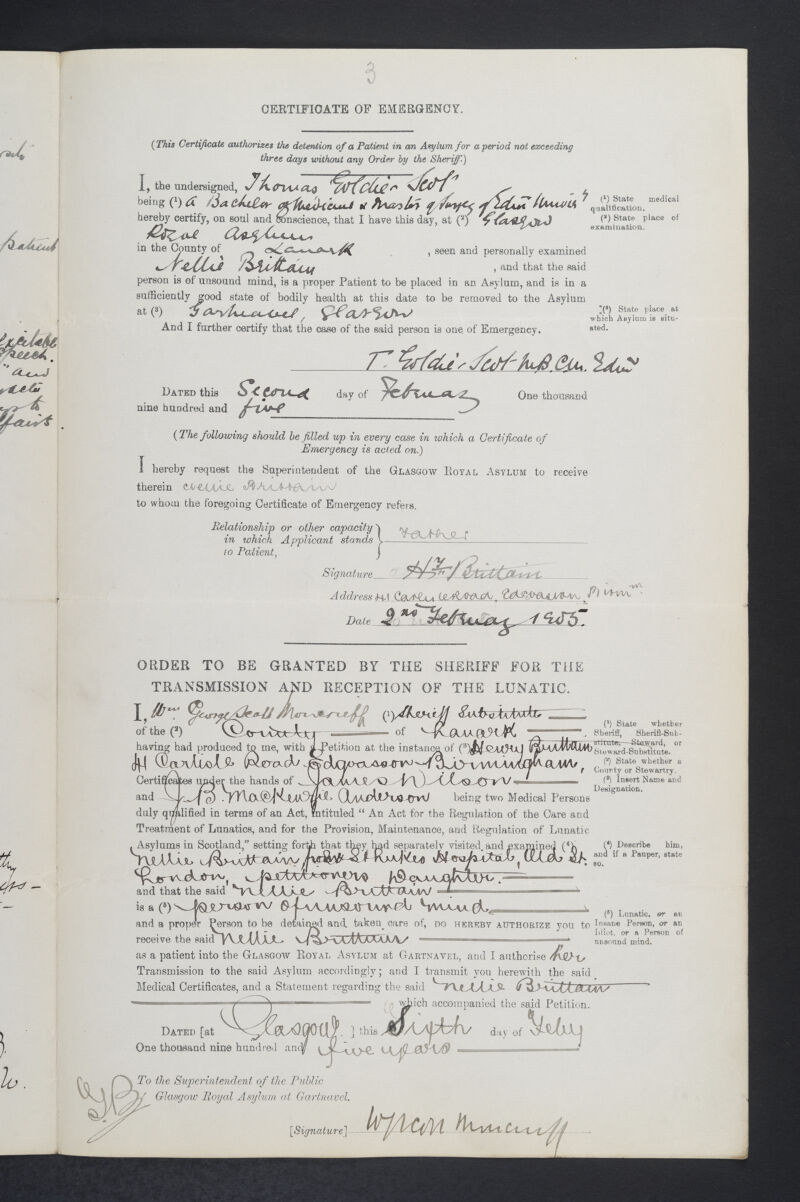 3
CERTIFICATE OF EMERGENCY.
(This Certificate authorizes the detention of a Patient in an Asylum for a period not exceeding
three days without any Order by the Sheriff.)
I, the undersigned, Thomas Goldie Scot
being (¹) A Bachelor of Medicine & Master of Surgery of Edinr Univers'y
(¹) State medical
qualification.
hereby certify, on soul and conscience, that I have this day, at (²) Glasgow
(²) State place of
examination.
Royal Asylum
in the County of Lanark , seen and personally examined
Nellie Brittain , and that the said
person is of unsound mind, is a proper Patient to be placed in an Asylum, and is in a
sufficiently good state of bodily health at this date to be removed to the Asylum
at (³) Gartnavel, Glasgow
(³) State place at
which Asylum is situ-
ated.
And I further certify that the case of the said person is one of Emergency.
T. Goldie Scot M.B. C.M. Edinr
DATED this Second day of February One thousand
nine hundred and five
(The following should be filled up in every case in which a Certificate of
Emergency is acted on.)
I hereby request the Superintendent of the GLASGOW ROYAL ASYLUM to receive
therein Nellie Brittain
to whom the foregoing Certificate of Emergency refers.
Relationship or other capacity
in which Applicant stands
to Patient,
Father
Signature Hy Brittain
Address 41 Carlisle Road, Edgbaston, Birmm
Date 2nd February 1905.
ORDER TO BE GRANTED BY THE SHERIFF FOR THE
TRANSMISSION AND RECEPTION OF THE LUNATIC.
I, Wm George Scott Moncrieff (¹) Sheriff Substitute
of the (²) County of Lanark
(¹) State whether
Sheriff, Sheriff-Sub-
stitute, Steward, or
Steward-Substitute.
having had produced to me, with a Petition at the instance of (³) Henry Brittain
41 Carlisle Road Edgbasson Birmingham,
(²) State whether a
County or Stewartry.
(³) Insert Name and
Designation.
Certificates under the hands of James Wilson
and J. B. MacKenzie Anderson being two Medical Persons
duly qualified in terms of an Act, intituled "An Act for the Regulation of the Care and
Treatment of Lunatics, and for the Provision, Maintenance, and Regulation of Lunatic
Asylums in Scotland," setting forth that they had separately visited and examined (⁴)
(⁴) Describe him,
and if a Pauper, state
so.
Nellie Brittain from St Lukes Hospital, Old St.
London, petitioners Daughter.
and that the said Nellie Brittain
is a (⁵) person of unsound mind
(⁵) Lunatic, or an
Insane Person, or an
Idiot, or a Person of
unsound mind.
and a proper Person to be detained and taken care of, DO HEREBY AUTHORIZE you to
receive the said Nellie Brittain
as a patient into the GLASGOW ROYAL ASYLUM at GARTNAVEL, and I authorise her
Transmission to the said Asylum accordingly; and I transmit you herewith the said
Medical Certificates, and a Statement regarding the said Nellie Brittain
which accompanied the said Petition.
DATED [at Glasgow ] this Sixth day of Feby
One thousand nine hundred and five years
To the Superintendent of the Public
Glasgow Royal Asylum at Gartnavel.
[Signature] W G Scott Moncrieff
patient
excitable
speech.
and